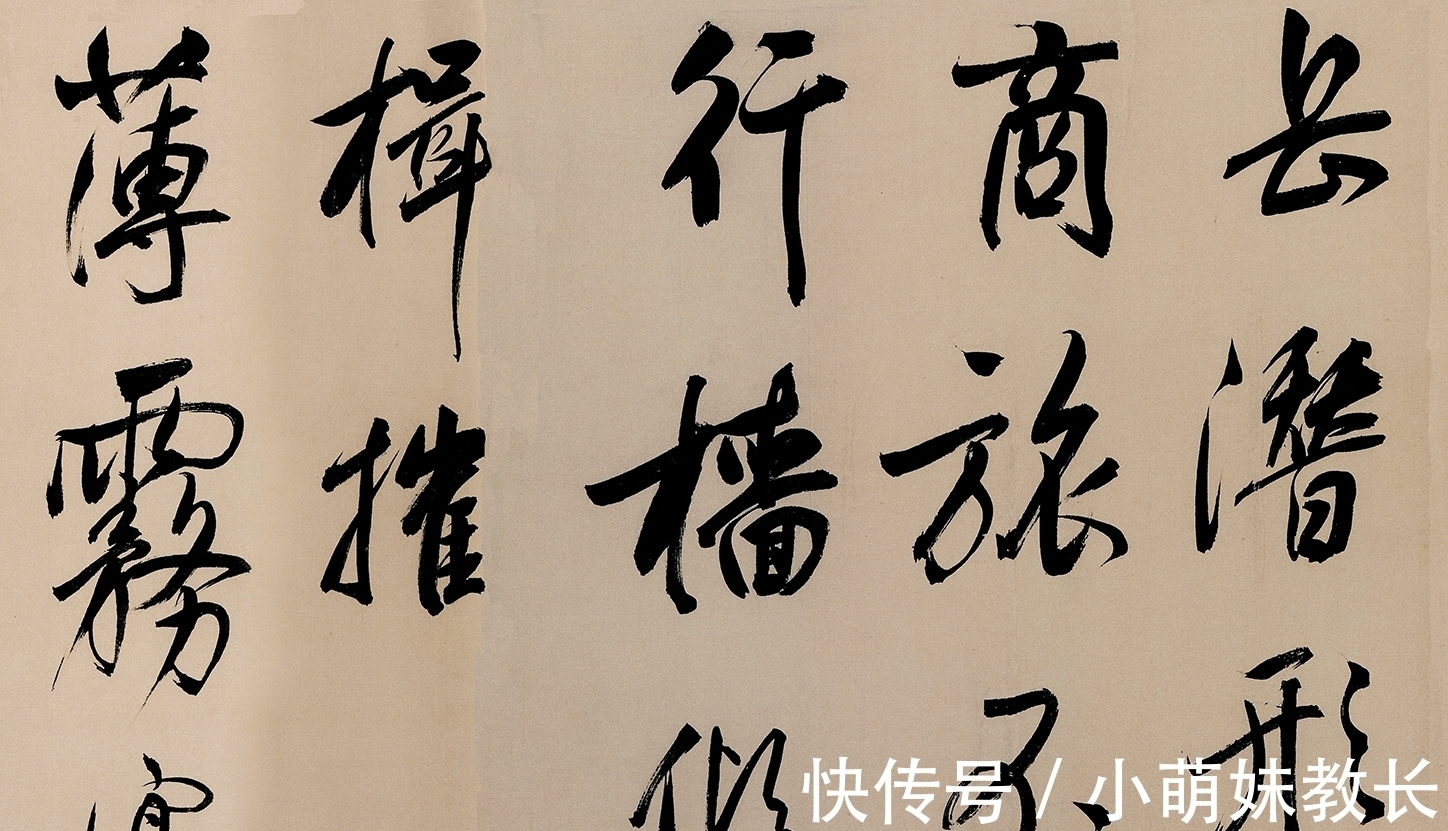 岳潛形
商旅不
行檣傾
楫摧
薄霧
快传号 / 小萌妹教长